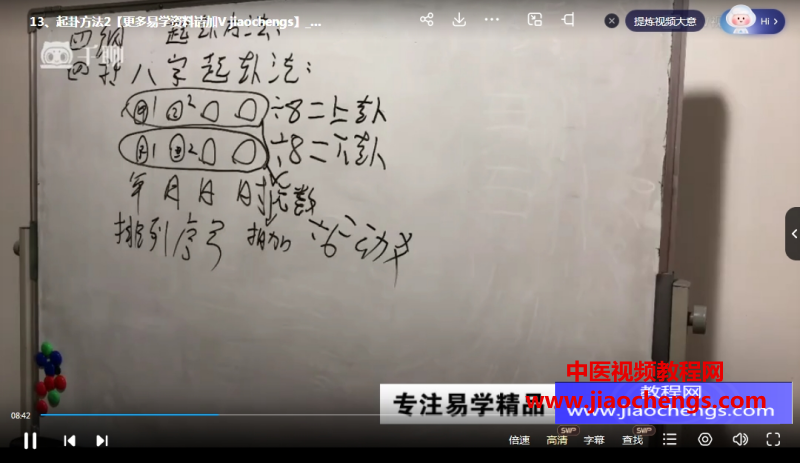 13、起卦方法2【更多易学资料请加V jiaochengs】_...
提炼视频大意
Hi >
千聊
起卦方法:
四柱八字起卦法:
甲1 ②2 ÷8=上卦
÷8=下卦
年 月 日 时 总数
排列序号 相加 ÷6=动爻
中医视频教程网
教程网
专注易学精品
www.jiaochengs.com
www.jiaochengs.com
08:42
倍速 高清 字幕 查找
SWP SWP